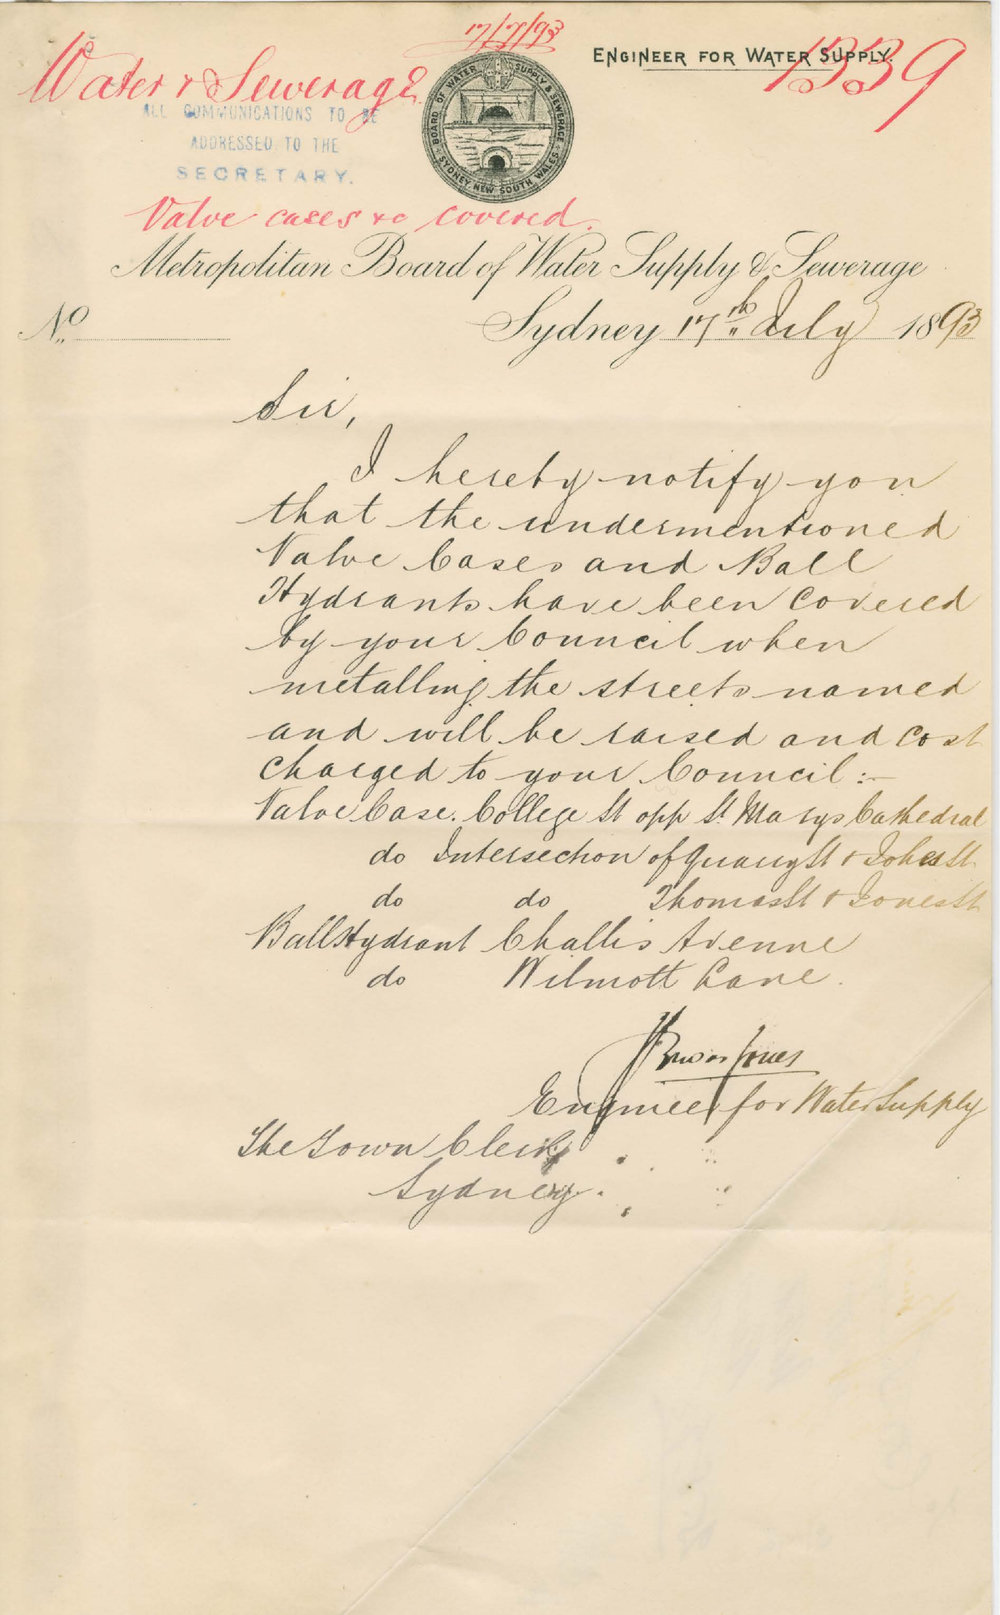 17/7/93
ENGINEER FOR WATER SUPPLY.
1339
Water & Sewerage
ALL COMMUNICATIONS TO BE
ADDRESSED TO THE
SECRETARY.
BOARD OF WATER SUPPLY & SEWERAGE
SYDNEY, NEW SOUTH WALES
Valve cases &c covered.
Metropolitan Board of Water Supply & Sewerage
No.
Sydney 17th July 1893
Sir,
I hereby notify you
that the undermentioned
Valve Cases and Ball
Hydrants have been covered
by your Council when
metalling the streets named
and will be raised and cost
charged to your Council :-
Valve Case. College St opp St Marys Cathedral
do Intersection of Quarry St & Jones St
do do Thomas St & Jones St
Ball Hydrant Challis Avenue
do Wilmott Lane.
Jones
Engineer for Water Supply
The Town Clerk
Sydney.